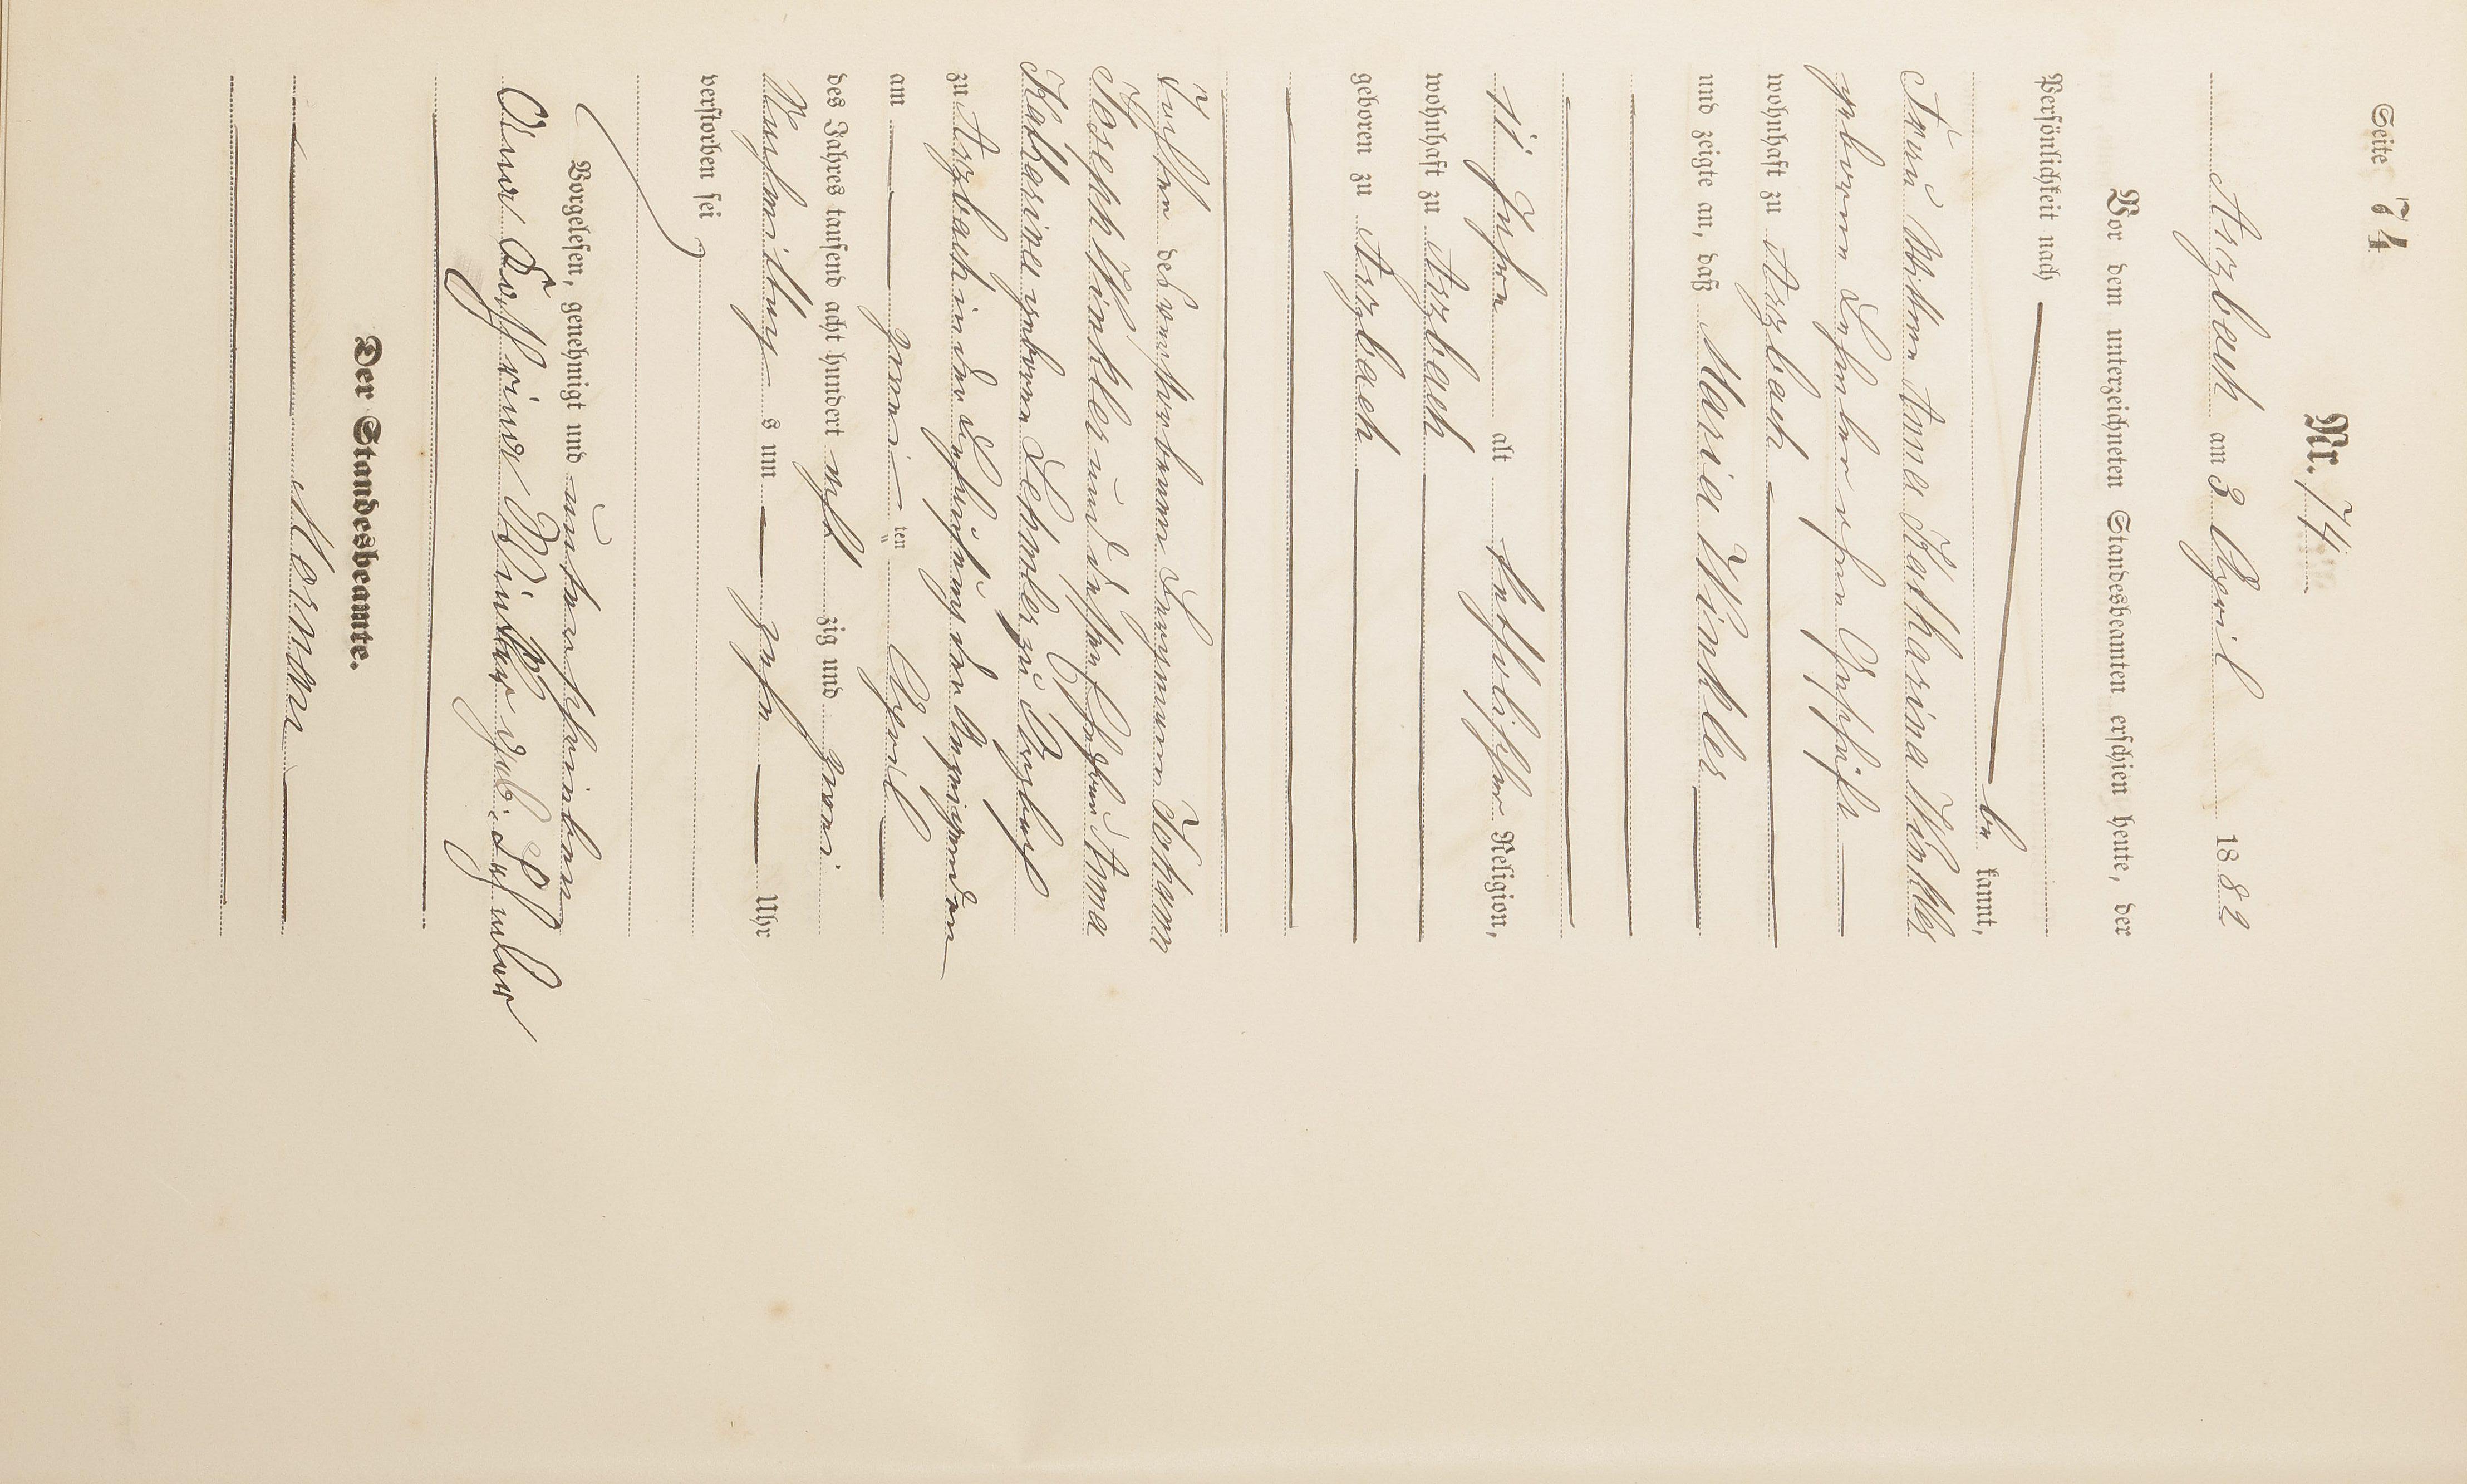 Seite 74
Nr. 74
Arzbach am 3 April 1882
Vor dem unterzeichneten Standesbeamten erschien heute, der
Persönlichkeit nach
be kannt,
Frau Wittwe Anna Katharina Winkler
geborene Lehmler ohne Geschäft
wohnhaft zu Arzbach
und zeigte an, daß Maria Winkler
11 Jahre alt katholischer Religion,
wohnhaft zu Arzbach
geboren zu Arzbach
Tochter des verstorbenen Bergmann Johann
Joseph Winkler und dessen Ehefrau Anna
Katharina geborene Lehmler zu Arzbach
zu Arzbach in der Behausung der Anzeigenden
am zwei ten April
des Jahres tausend acht hundert acht zig und zwei
Nachmittag s um zehn Uhr
verstorben sei
Vorgelesen, genehmigt und unterschrieben
Anna Kathrina Winkler geb. Lehmler
Der Standesbeamte.